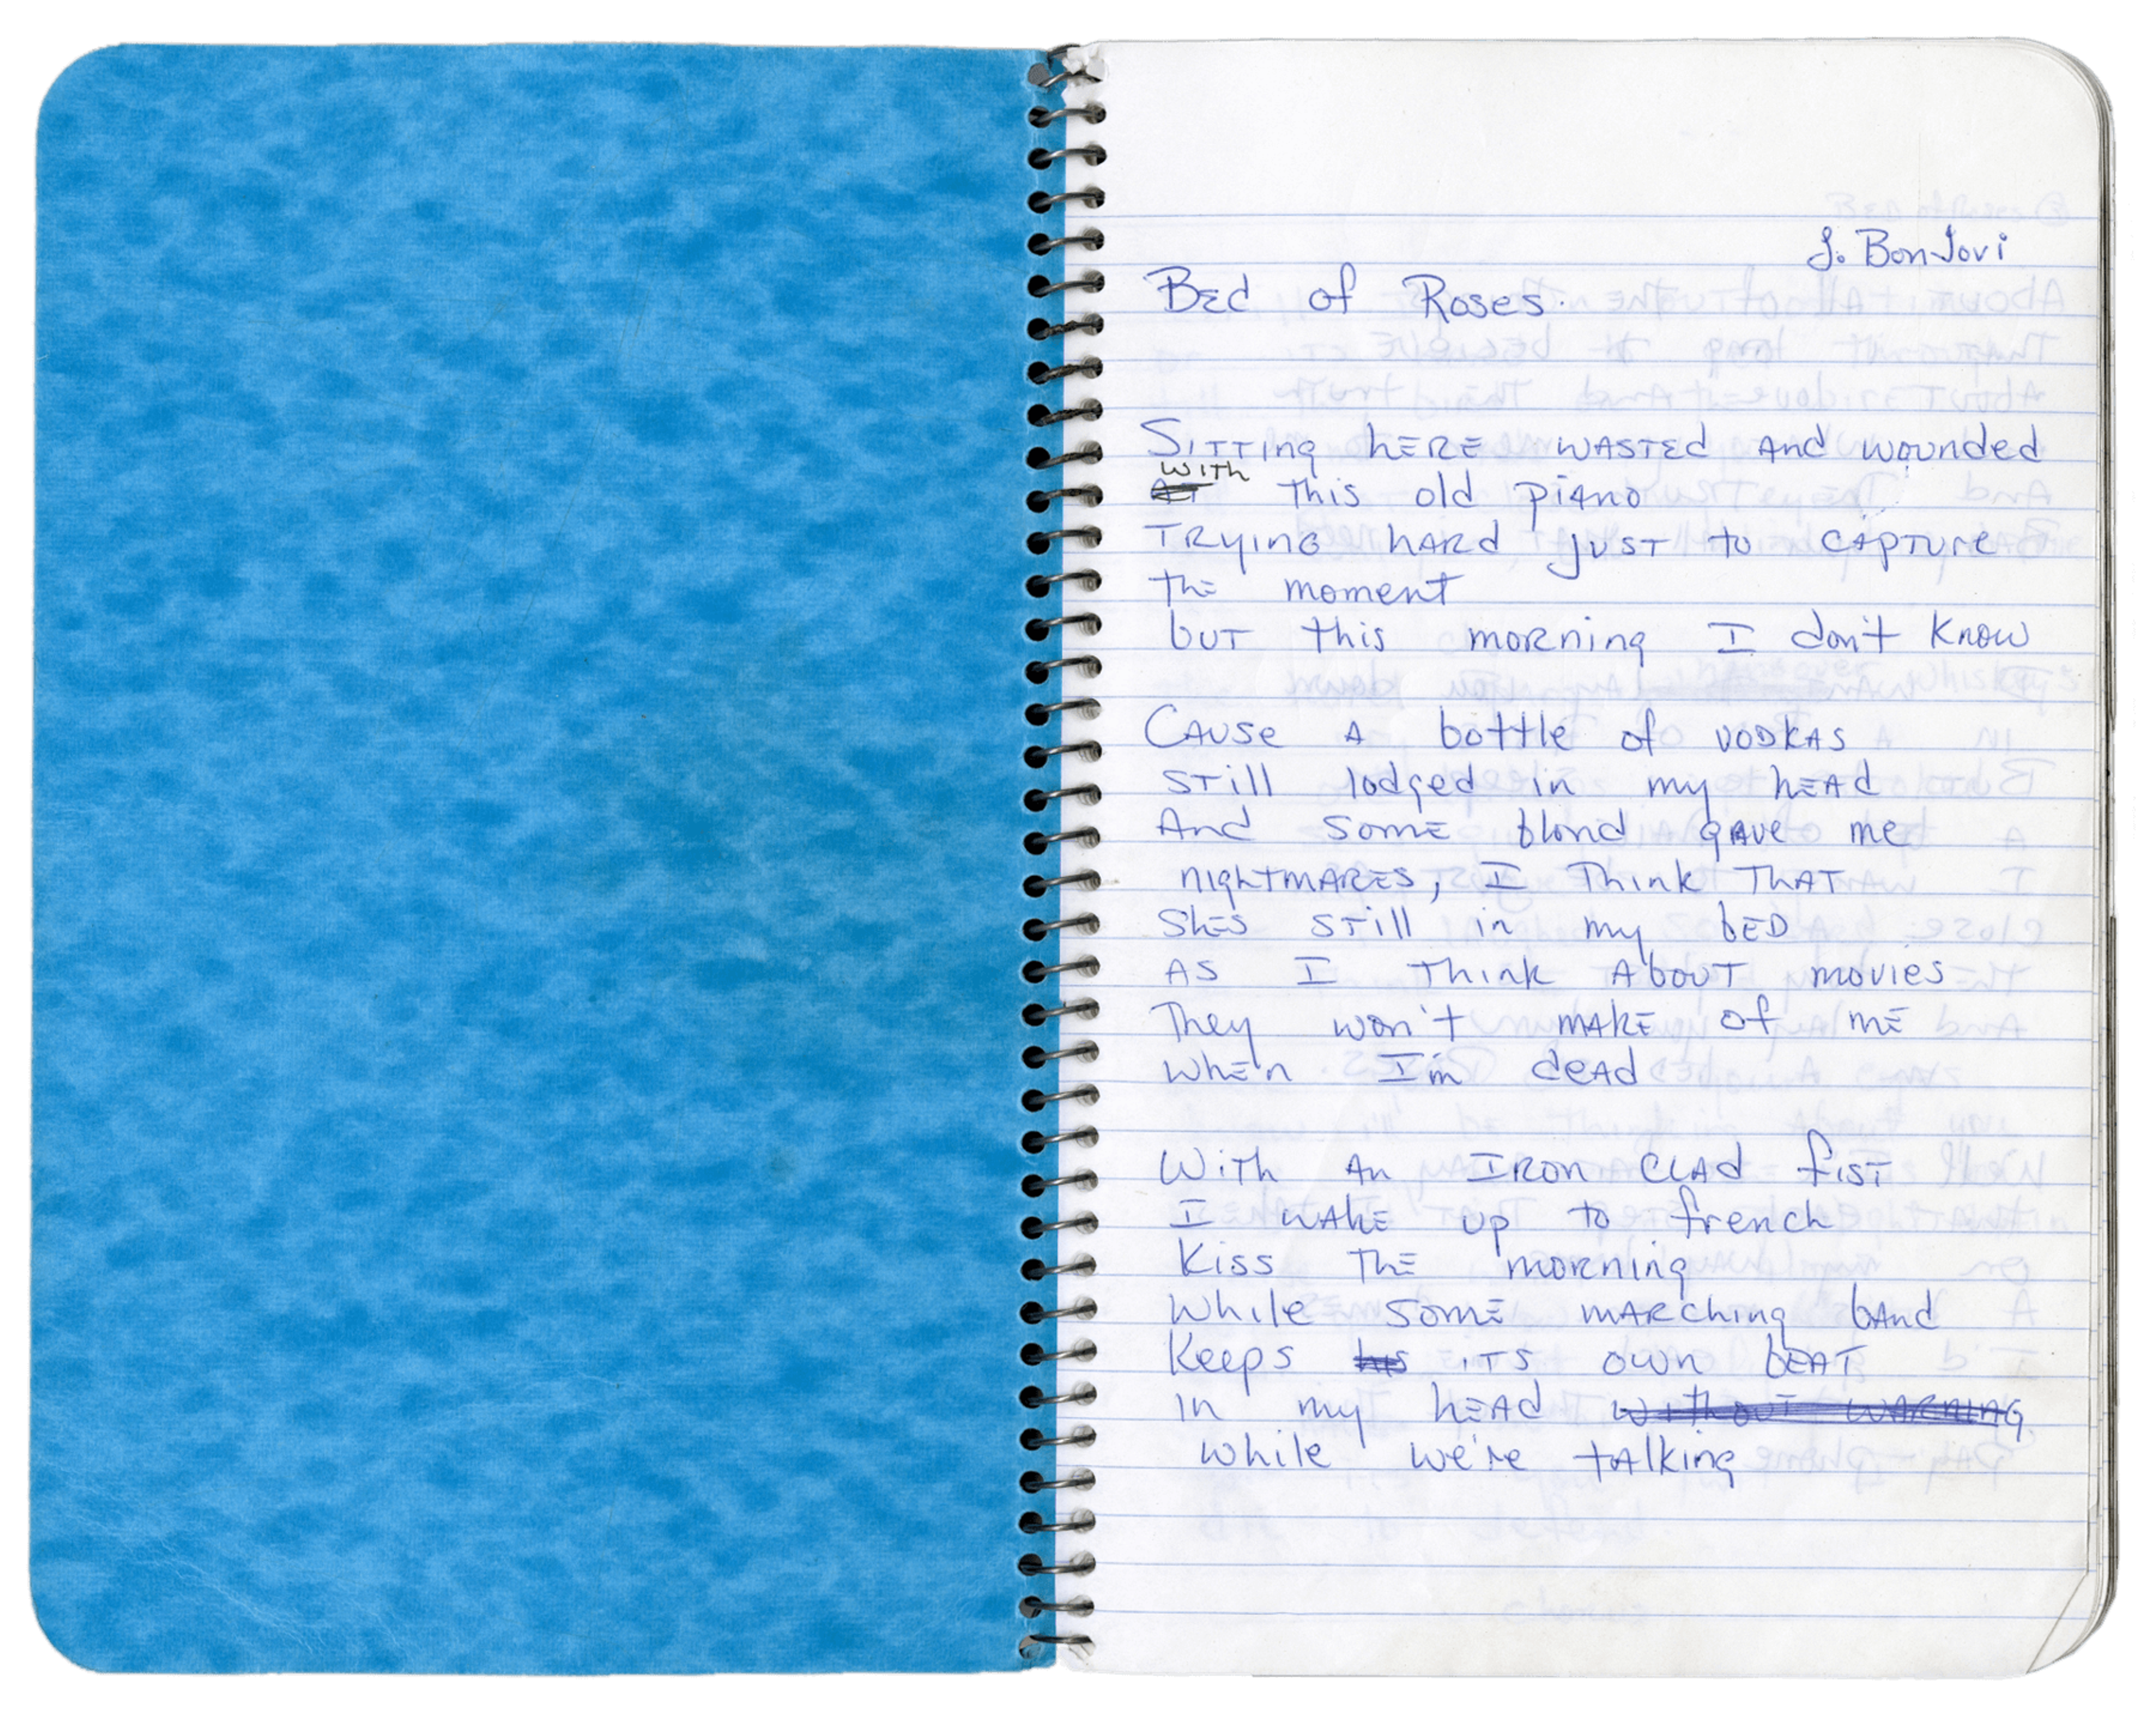 J. BonJovi
Bed of Roses.
Sitting here wasted and wounded
with
At this old piano
Trying hard just to capture
the moment
but this morning I don't know
Cause a bottle of vodkas
still lodged in my head
And some blond gave me
nightmares, I think that
Shes still in my bed
as I think about movies
They won't make of me
when I'm dead
With an Iron clad fist
I wake up to french
Kiss the morning
While some marching band
Keeps his its own beat
in my head without warning
while we're talking